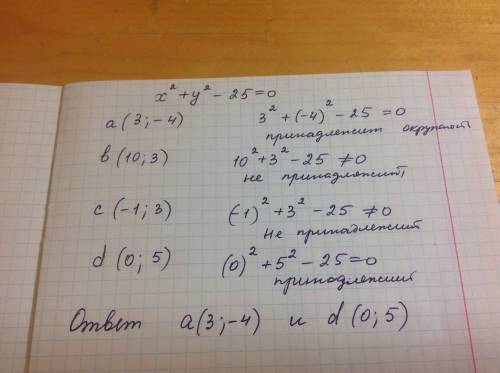 x² + y² - 25 = 0
a (3; -4) 3² + (-4)² - 25 = 0
принадлежит окружности
b (10; 3) 10² + 3² - 25 ≠ 0
не принадлежит
c (-1; 3) (-1)² + 3² - 25 ≠ 0
не принадлежит
d (0; 5) (0)² + 5² - 25 = 0
принадлежит
Ответ a(3; -4) и d(0; 5)